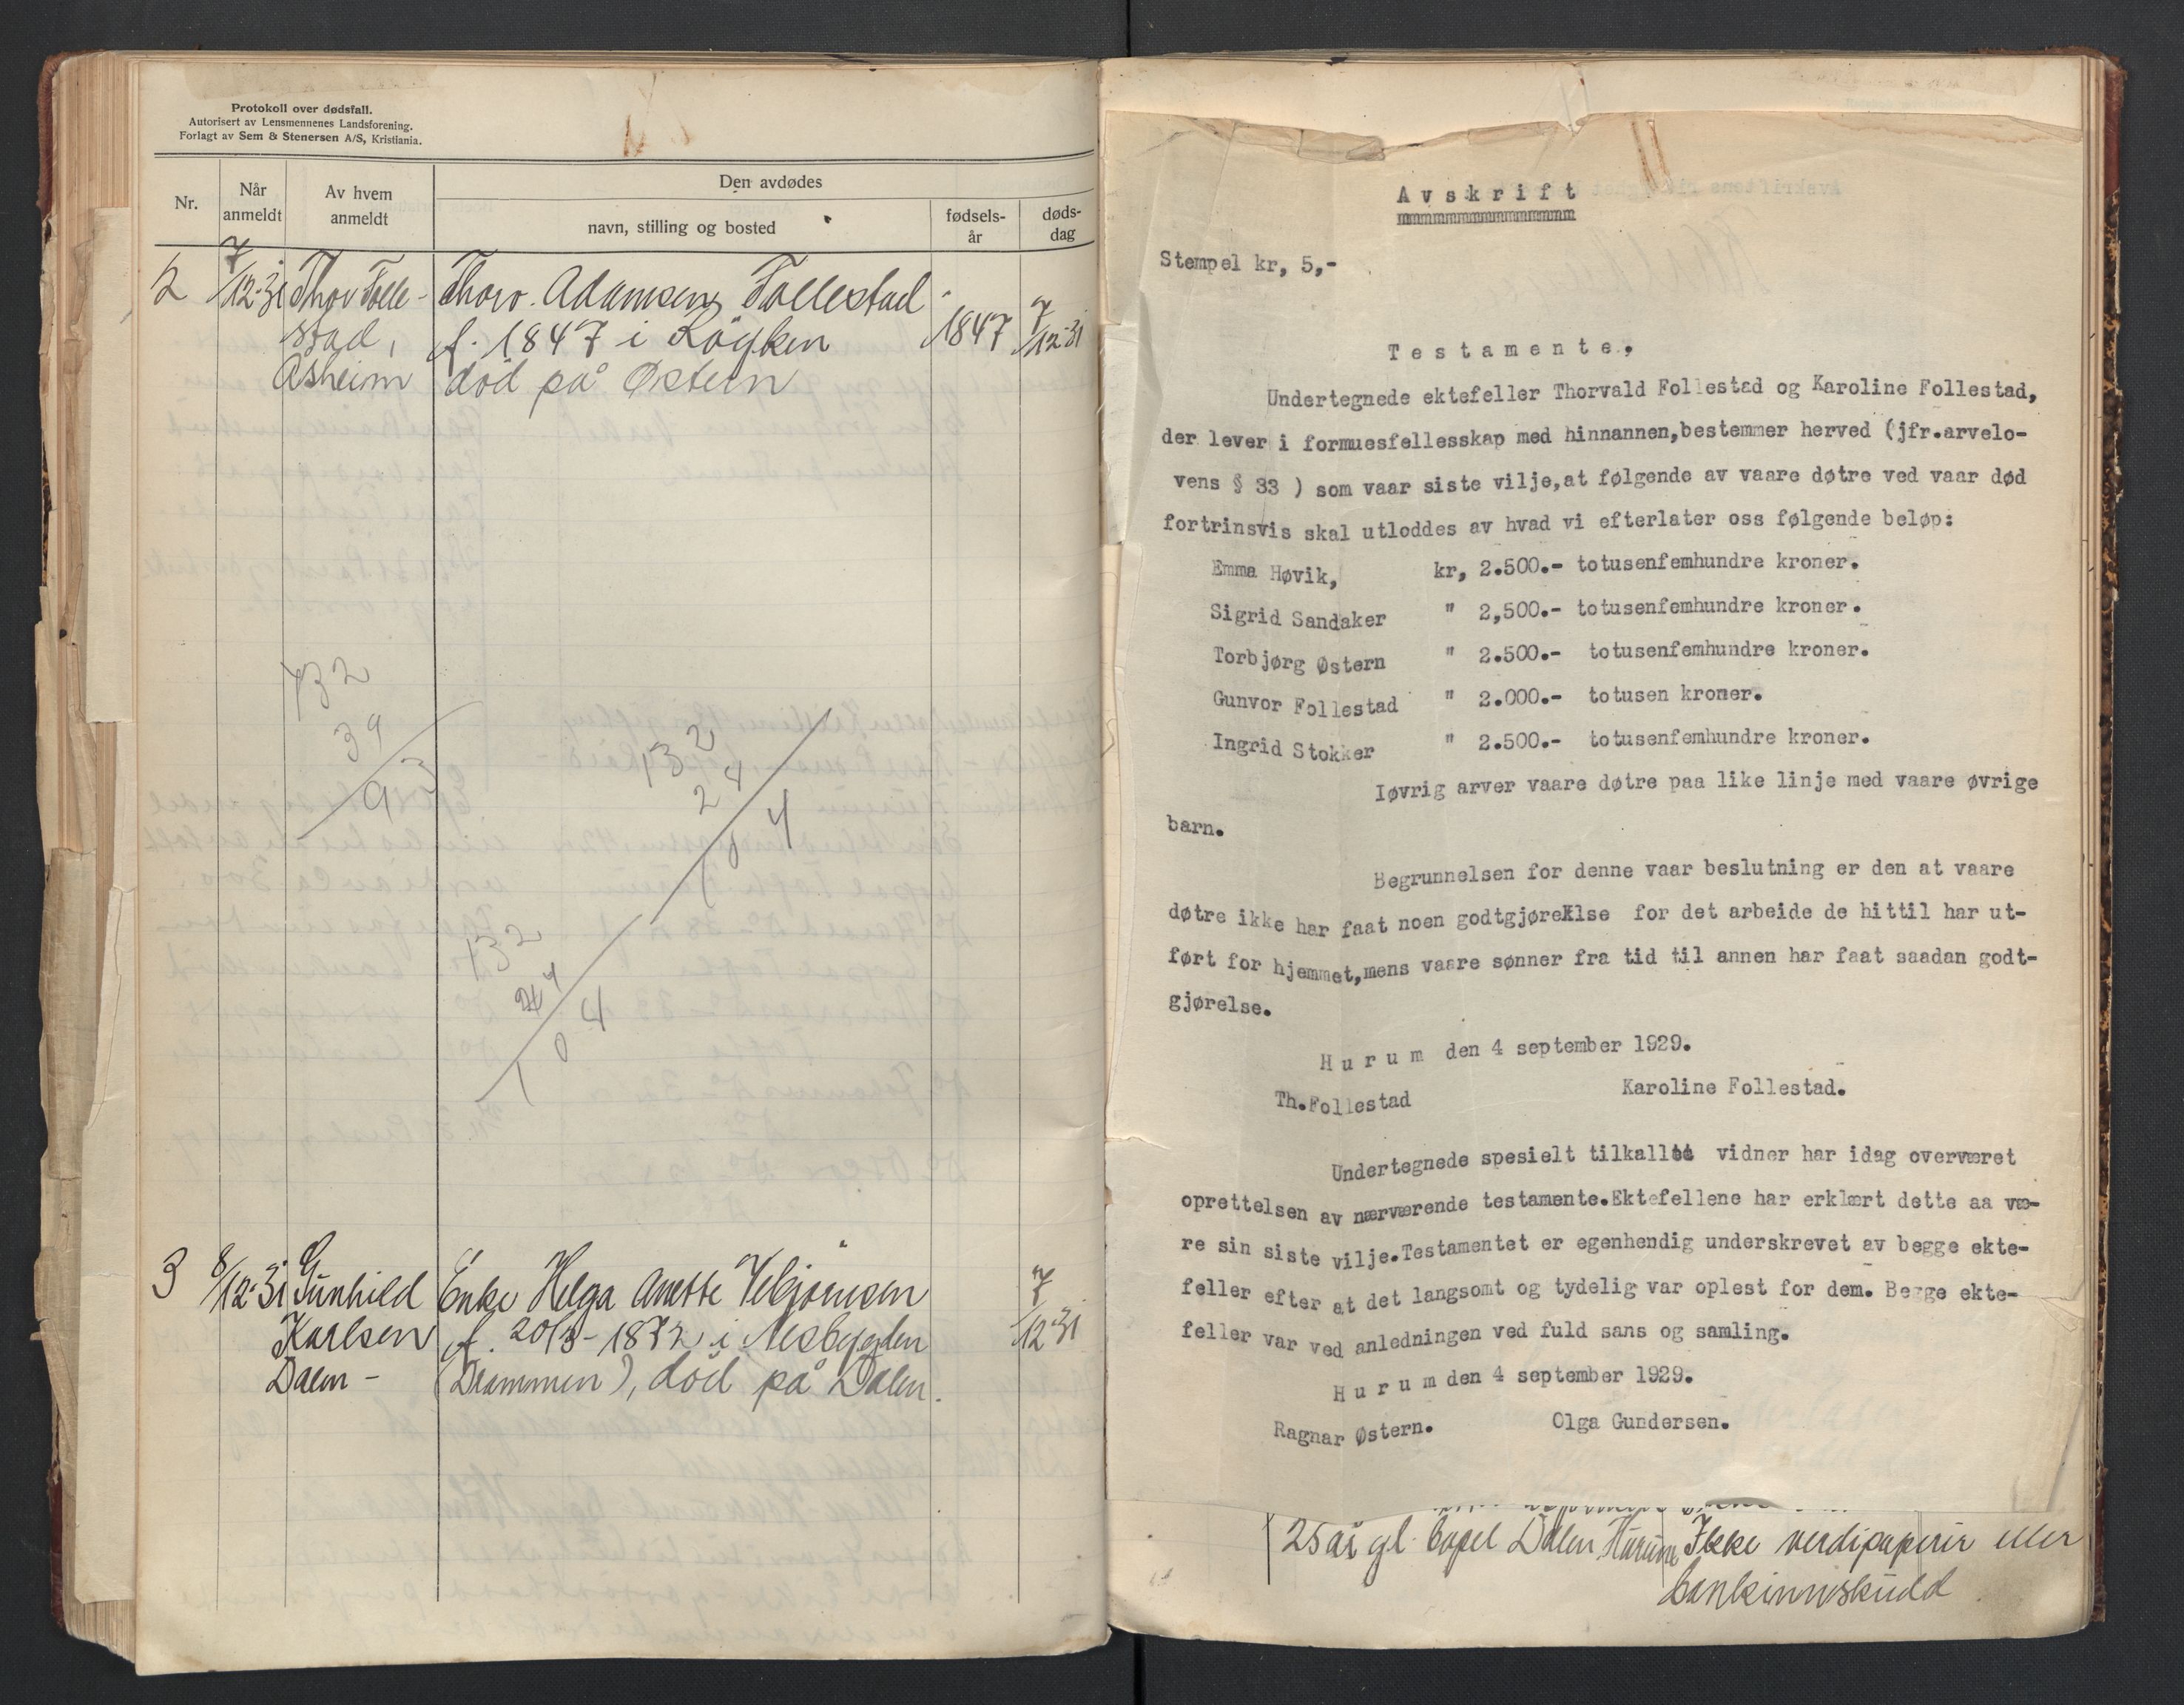 Protokoll over dødsfall.
Autorisert av Lensmennenes Landsforening.
Forlagt av Sem & Stenersen A/S, Kristiania.
Nr.
Når anmeldt
Av hvem anmeldt
Den avdødes
navn, stilling og bosted
fødsels-år
døds-dag
2 7/12-31 Thor Folle- Thorv. Adamsen Follestad
stad, f. 1847 i Røyken 1847 7/12-31
Åsheim død på Østern
132
39
93
132
24
104
132
24
104
3 8/12-31 Gunhild Enke Helga Anette 7
Karlsen f. 20/3-1872 i Nesbygden 12-31
Dalen - (Drammen), død på Dalen.
Avskrift
Stempel kr, 5,-
Testamente.
Undertegnede ektefeller Thorvald Follestad og Karoline Follestad,
der lever i formuesfellesskap med hinnannen,bestemmer herved (jfr.arvelo-
vens § 33 ) som vaar siste vilje,at følgende av vaare døtre ved vaar død
fortrinsvis skal utloddes av hvad vi efterlater oss følgende beløp:
Emma Høvik, kr, 2.500.- totusenfemhundre kroner.
Sigrid Sandaker " 2,500.- totusenfemhundre kroner.
Torbjørg Østern " 2.500.- totusenfemhundre kroner.
Gunvor Follestad " 2.000.- totusen kroner.
Ingrid Stokker " 2.500.- totusenfemhundre kroner.
Iøvrig arver vaare døtre paa like linje med vaare øvrige
barn.
Begrunnelsen for denne vaar beslutning er den at vaare
døtre ikke har faat noen godtgjørelse for det arbeide de hittil har ut-
ført for hjemmet,mens vaare sønner fra tid til annen har faat saadan godt-
gjørelse.
Hurum den 4 september 1929.
Th.Follestad Karoline Follestad.
Undertegnede spesielt tilkallte vidner har idag overværet
oprettelsen av nærværende testamente.Ektefellene har erklært dette aa væ-
re sin siste vilje.Testamentet er egenhendig underskrevet av begge ekte-
feller efter at det langsomt og tydelig var oplest for dem. Begge ekte-
feller var ved anledningen ved fuld sans og samling.
Hurum den 4 september 1929.
Ragnar Østern. Olga Gundersen.
25 år gl. bopel Dalen Hurum Ikke verdipapirir eller
bankinnskudd